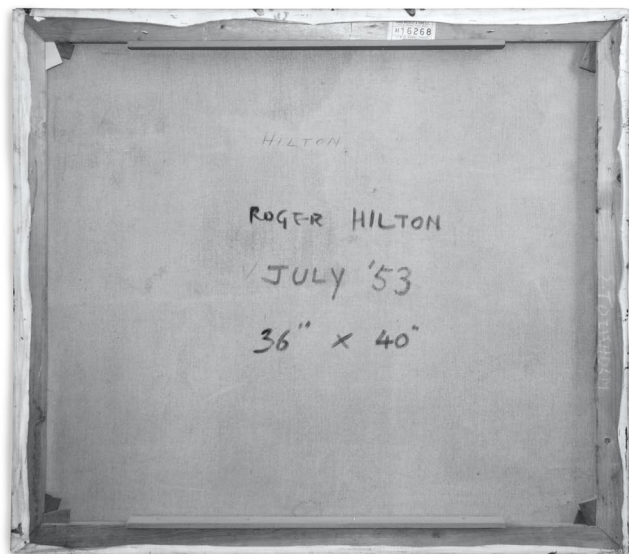 16268
HILTON
ROGER HILTON
JULY '53
36" x 40"